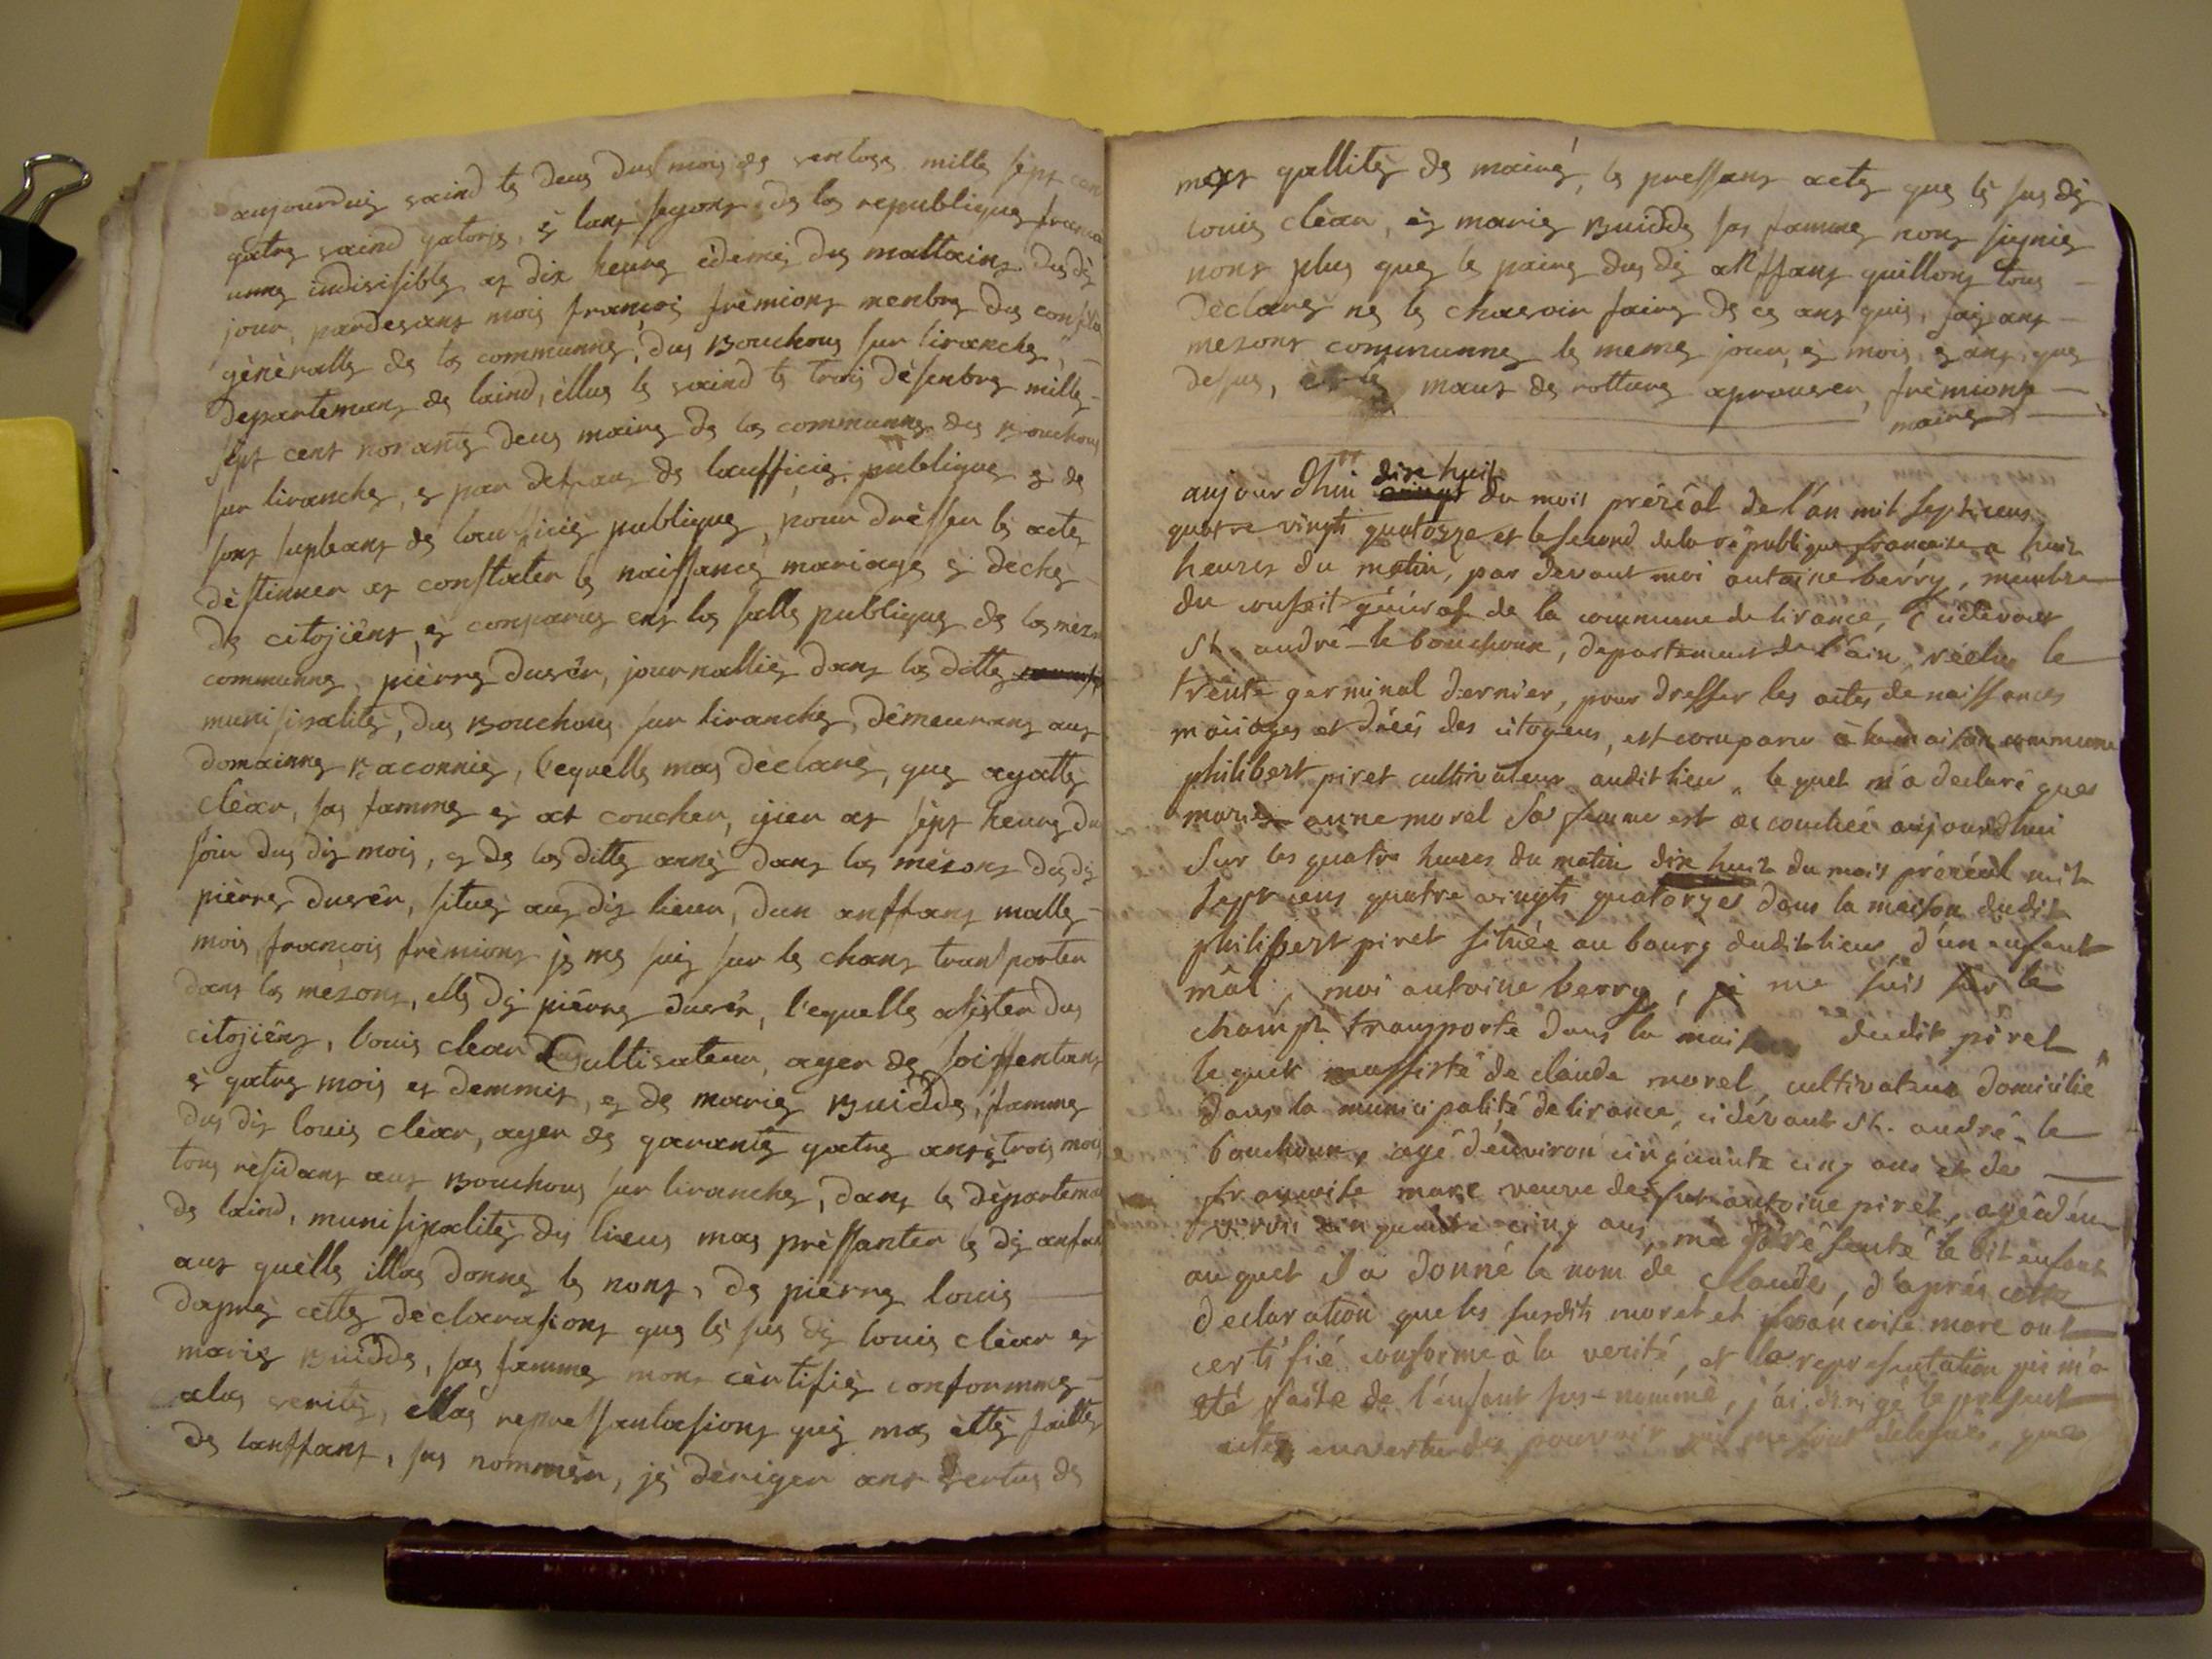 aujourduis vaind te deus dus mois de ventose mille sept cen
quatre vaind quatorse, é lans segons de las republique franca
unne indivisible as dix heure édemis dus mattains dus dis
jour, pardevans mois françois frèmions menbre des conselie
gènèralle de las communne, dus Bouchous sur liranche,
departemans de laind, èllus le vaind te trois dèsenbre mille
sept cens norante deus maire de las communne dus Bouchous
sur liranche, e par defaus de laufficié publique é de
sons supleans de laufficié publique, pour drèsser lé acte
dèstinner as constater lé naissance mariage é deché
de citojiéns, é conparus ens las salle publique de las mezon
communne, pièrre duvér, journallié dans las ditte
munisipalité, dus Bouchous sur liranche, démeurans aus
domainne Raconnié, lequelle mas dèclaré, que agatte
clèar, sas famme é as coucher, yier as sèpt heure du
soir dus dis mois, e de las ditte anné dans las mèzons dus dis
pièrre duvér, situé aus dis lieur, dun anffans malle
mois, françois frèmions je me suis sur le chans transporter
dans las mezons, elle dis pièrre duvér, l'equelle asister dus
citojiéns, louis clear Cultivateur, ager de soissentans
é quatre mois es demmis, e de marie Buidde, famme
dus dis louis clèar, ager de quarante quatre ans é trois mois
tous rèsidans aus Bouchous sur liranche, dans le dèpartemen
de laind, munisipalité dis lieus mas prèssanter le dis anfan
aus quèlle illas donné le nons, de pièrre louis
daprè cètte dèclarasions que lè sus dis louis clèar é
marie Buidde, sas famme mons cèrtifié conformme
alas verité, èllas repressantasions quis mas ètté faitte
de lanffans, sus nommér, jé dèriger ans vertus de
mas quallité de mairé, le pressans acte que lè sus dis
louis clèar, é marie Buidde sas famme nons signié
nons plus que le paire dus dis anffans quillons tous
dèclaré ne le chavoir faire de ce ans quis, fais ans
mezons communne le meme jour, é mois, e ans, que
desus, é le maus de rotture aprouver, frèmions
maire
aujourdhui dix huit du mois préréal de l'an mil sept cens
quatre vingts quatorze et le second de la république francaise a huit
heures du matin, par devant moi antoine berry, membre
du conseil général de la commune de lirance, cidevant
St. andré-le bouchoux, departement de l'ain, réélus le
trente germinal dernier, pour dresser les actes de naissances
mariages et décés des citoyens, est comparu à la maison commune
philibert piret cultivateur audit lieu, le quel m'a declaré que
marie anne morel Sa femme est acouchée aujourdhui
Sur les quatre heures du matin dix huit du mois préréal mil
sept cens quatre vingts quatorze dans la maison dudit
philibert piret située au bourg dudit lieu, d'un enfant
mâl, moi antoine berry, je me suis sur le
champ transporté dans la maison dudit piret
le quel massisté de claude morel, cultivateur domicilié
dans la municipalité de lirance, cidévant St. andré-le
bouchoux, agé d'environ cinquante cinq ans et de
francoise mare veuve de feu antoine piret, agée d'en
viron cinquante cinq ans, m'a présenté le dit enfant
auquel il a donné le nom de claude, d'aprés cette
declaration que les susdits morel et francoise mare ont
certifié conforme à la verité, et la representation qui m'a
été faite de l'enfant sus-nommé, j'ai dirigé le present
acte, en vertu des pouvoir qui me sont délégués, que